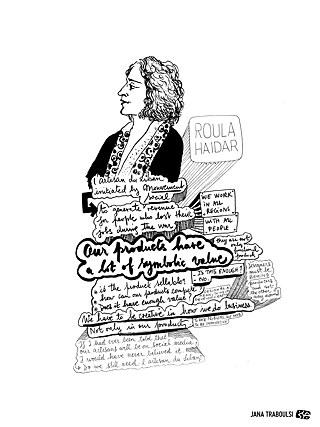 ROULA
HAIDAR
L'artisan du Liban
initiated by Mouvement
Social
to generate revenue
for people who lost their
jobs during the war
WE WORK
IN ALL
REGIONS
WITH ALL
PEOPLE
Our products have
a lot of symbolic value
they are not
only
IS THIS ENOUGH?
NO
is the product sellable?
how can our products compete
does it have enough value?
We have to be creative in how we do business
Not only in our products
If I had ever been told that
our artisans will be on social media
I would have never believed it
Do we still need L'artisan du Liban?
JANA TRABOULSI